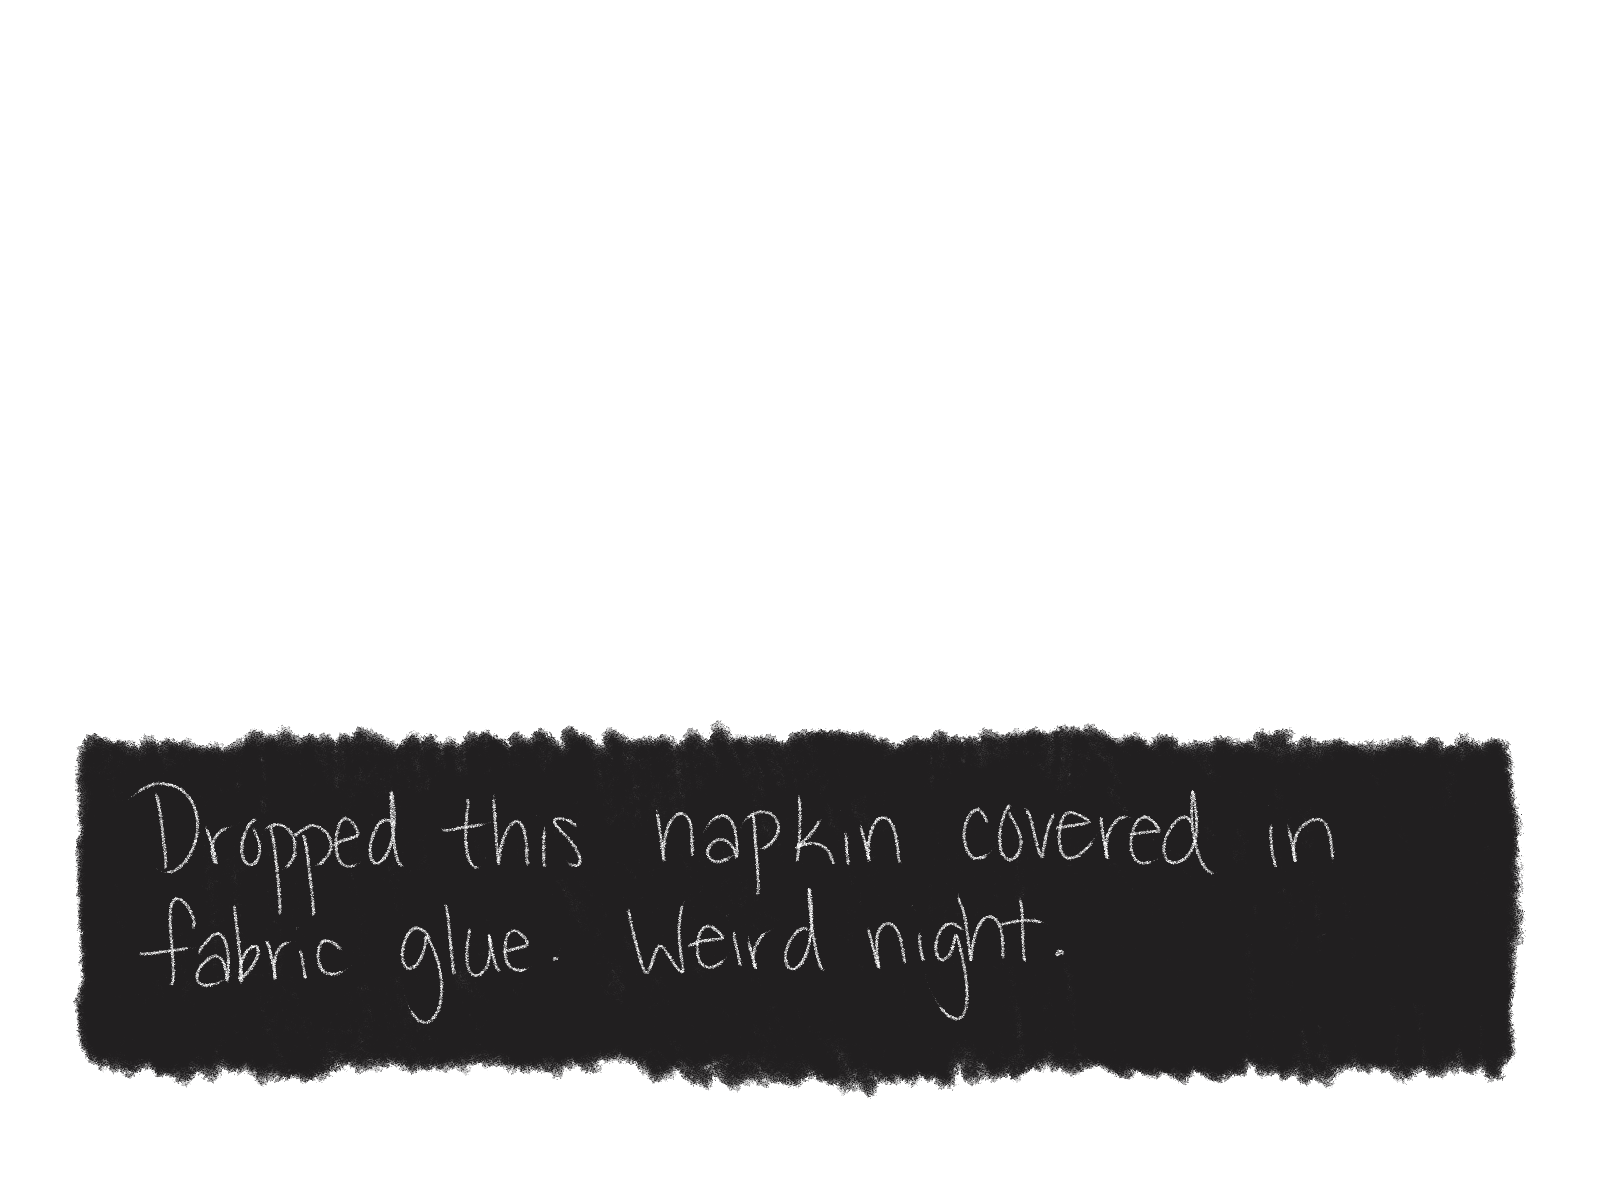 Dropped this napkin covered in
fabric glue. Weird night.